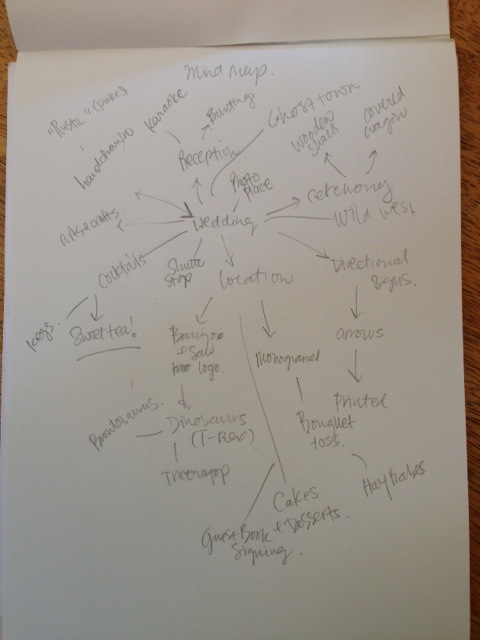 Mind map.
"Rustic"
Karaoke
Bunting
Ghost town
handchairs
Reception
Wooden
covered
wagon
Photo
Place
ceremony
Wild west
arts & crafts
Wedding
cocktails
Shuttle
stop
location
Directional
signs.
Kegs.
Sweet tea!
+ Saw
logo.
Monogramed
arrows
Printed
Brontosaurus.
Dinosaurs
(T-Rex)
Bouquet
toss.
Triceratop
Hay Bales
Cakes
+ Desserts.
Guest Book
Signing.